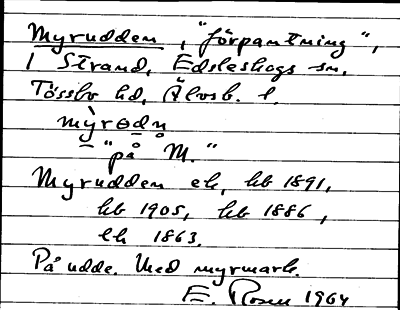 Myrudden, "förpantning",
1 Strand, Edsleskogs sn,
Tössbo hd, Älvsb. l.
myrodn
"på M."
Myrudden ek, hb 1891,
hb 1905, hb 1886,
lk 1863.
På udde. Med myrmark.
E. Rosell 1964